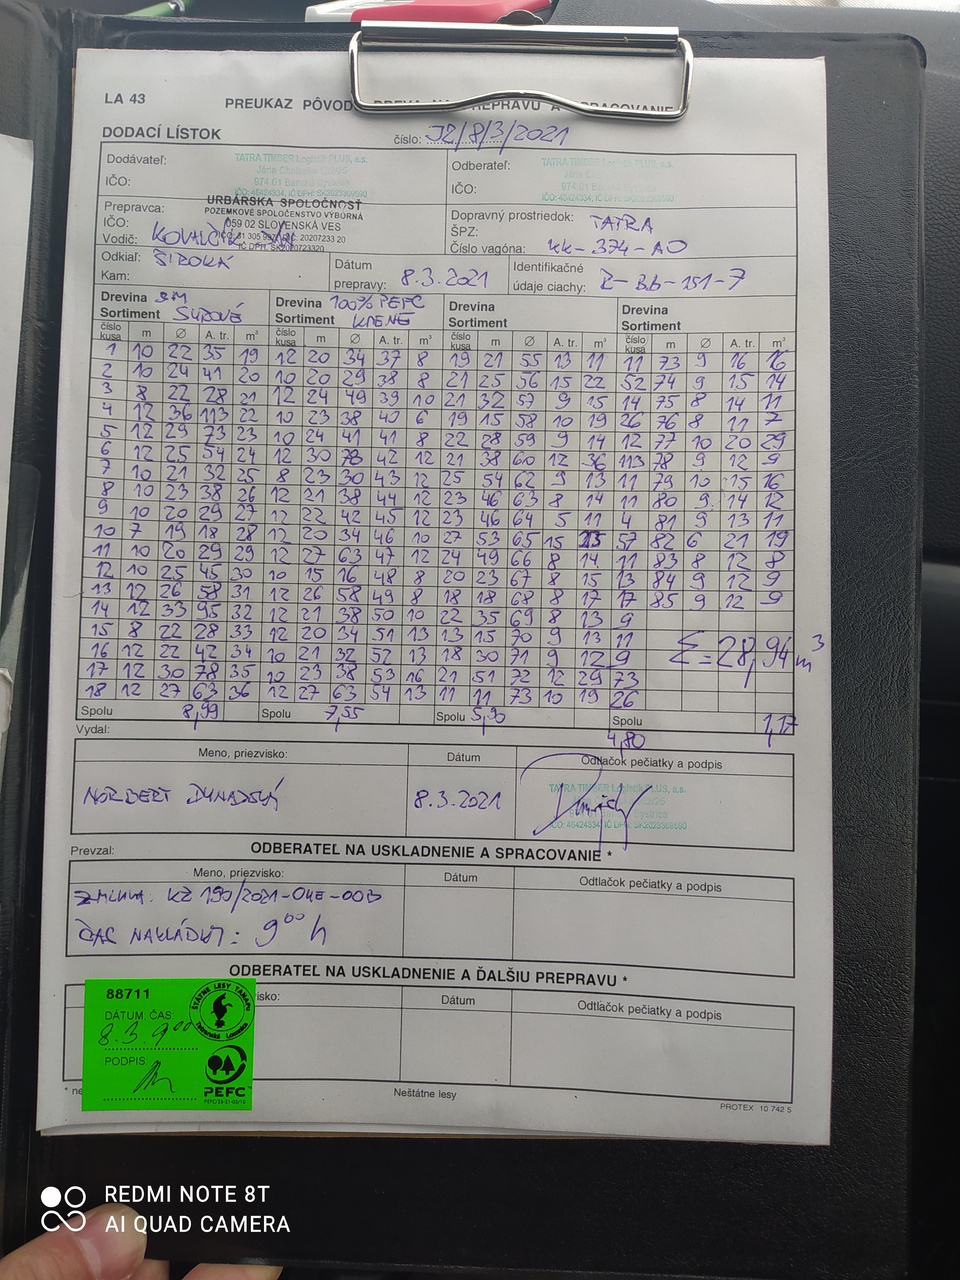 LA 43
PREUKAZ PÔVOD DREVA NA PREPRAVU A SPRACOVANIE
DODACÍ LÍSTOK
číslo: JZ/8/3/2021
Dodávateľ:
TATRA TIMBER Logistik PLUS, a.s.
974 01 Banská Bystrica
IČO: 46424334, IČ DPH: SK2023369590
IČO:
Odberateľ:
TATRA TIMBER Logistik PLUS, a.s.
974 01 Banská Bystrica
IČO: 46424334, IČ DPH: SK2023369590
IČO:
Prepravca:
URBÁRSKA SPOLOČNOSŤ
POZEMKOVÉ SPOLOČENSTVO VÝBORNÁ
059 02 SLOVENSKÁ VES
IČO:
Vodič: KOVALČÍK JÁN
Dopravný prostriedok: TATRA
ŠPZ:
Číslo vagóna: KK-374-AO
Odkiaľ: ŠIROKÁ
Kam:
Dátum prepravy: 8.3.2021
Identifikačné údaje ciachy: R-BB-151-7
Drevina SM
Sortiment SUROVÉ
Drevina 100% PEFC
Sortiment KMENE
Drevina
Sortiment
Drevina
Sortiment
číslo kusa m ∅ A. tr. m³ číslo kusa m ∅ A. tr. m³ číslo kusa m ∅ A. tr. m³ číslo kusa m ∅ A. tr. m³
1 10 22 35 19 12 20 34 37 8 19 21 55 13 11 11 73 9 16 16
2 10 24 41 20 10 20 29 38 8 21 25 56 15 22 52 74 9 15 14
3 8 22 28 21 12 24 49 39 10 21 32 57 9 15 14 75 8 14 11
4 12 36 113 22 10 23 38 40 6 19 15 58 10 19 26 76 8 11 7
5 12 29 73 23 10 24 41 41 8 22 28 59 9 14 12 77 10 20 29
6 12 25 54 24 12 30 78 42 12 21 38 60 12 36 113 78 9 12 9
7 10 21 32 25 8 23 30 43 12 25 54 62 9 13 11 79 10 15 16
8 10 23 38 26 12 21 38 44 12 23 46 63 8 14 11 80 9 14 12
9 10 20 29 27 12 22 42 45 12 23 46 64 5 11 4 81 9 13 11
10 7 19 18 28 12 20 34 46 10 27 53 65 15 23 57 82 6 21 19
11 10 20 29 29 12 27 63 47 12 24 49 66 8 14 11 83 8 12 8
12 10 25 45 30 10 15 16 48 8 20 23 67 8 15 13 84 9 12 9
13 12 26 58 31 12 26 58 49 8 18 18 68 8 17 17 85 9 12 9
14 12 33 95 32 12 21 38 50 10 22 35 69 8 13 9
15 8 22 28 33 12 20 34 51 13 13 15 70 9 13 11
16 12 22 42 34 10 21 32 52 13 18 30 71 9 12 9
17 12 30 78 35 10 23 38 53 16 21 51 72 12 29 73
18 12 27 63 36 12 27 63 54 13 11 11 73 10 19 26
Σ=28,94 m³
Spolu 8,99
Spolu 7,55
Spolu 5,90
Spolu 4,80
1,17
Vydal:
Meno, priezvisko:
Dátum
Odtlačok pečiatky a podpis
NORBERT DUNAJSKÝ
8.3.2021
TATRA TIMBER Logistik PLUS, a.s.
IČO: 46424334, IČ DPH: SK2023369590
Prevzal:
ODBERATEĽ NA USKLADNENIE A SPRACOVANIE *
Meno, priezvisko:
Dátum
Odtlačok pečiatky a podpis
ZMLUVA: KZ 190/2021-OKE-OOD
ČAS NAKLÁDKY: 9⁰⁰ h
ODBERATEĽ NA USKLADNENIE A ĎALŠIU PREPRAVU *
visko:
Dátum
Odtlačok pečiatky a podpis
88711
DÁTUM, ČAS
8.3. 9⁰⁰
PODPIS
ŠTÁTNE LESY TANAPU
Tatranská Lomnica
PEFC
* ne
Neštátne lesy
PROTEX 10 742 5
REDMI NOTE 8T
AI QUAD CAMERA